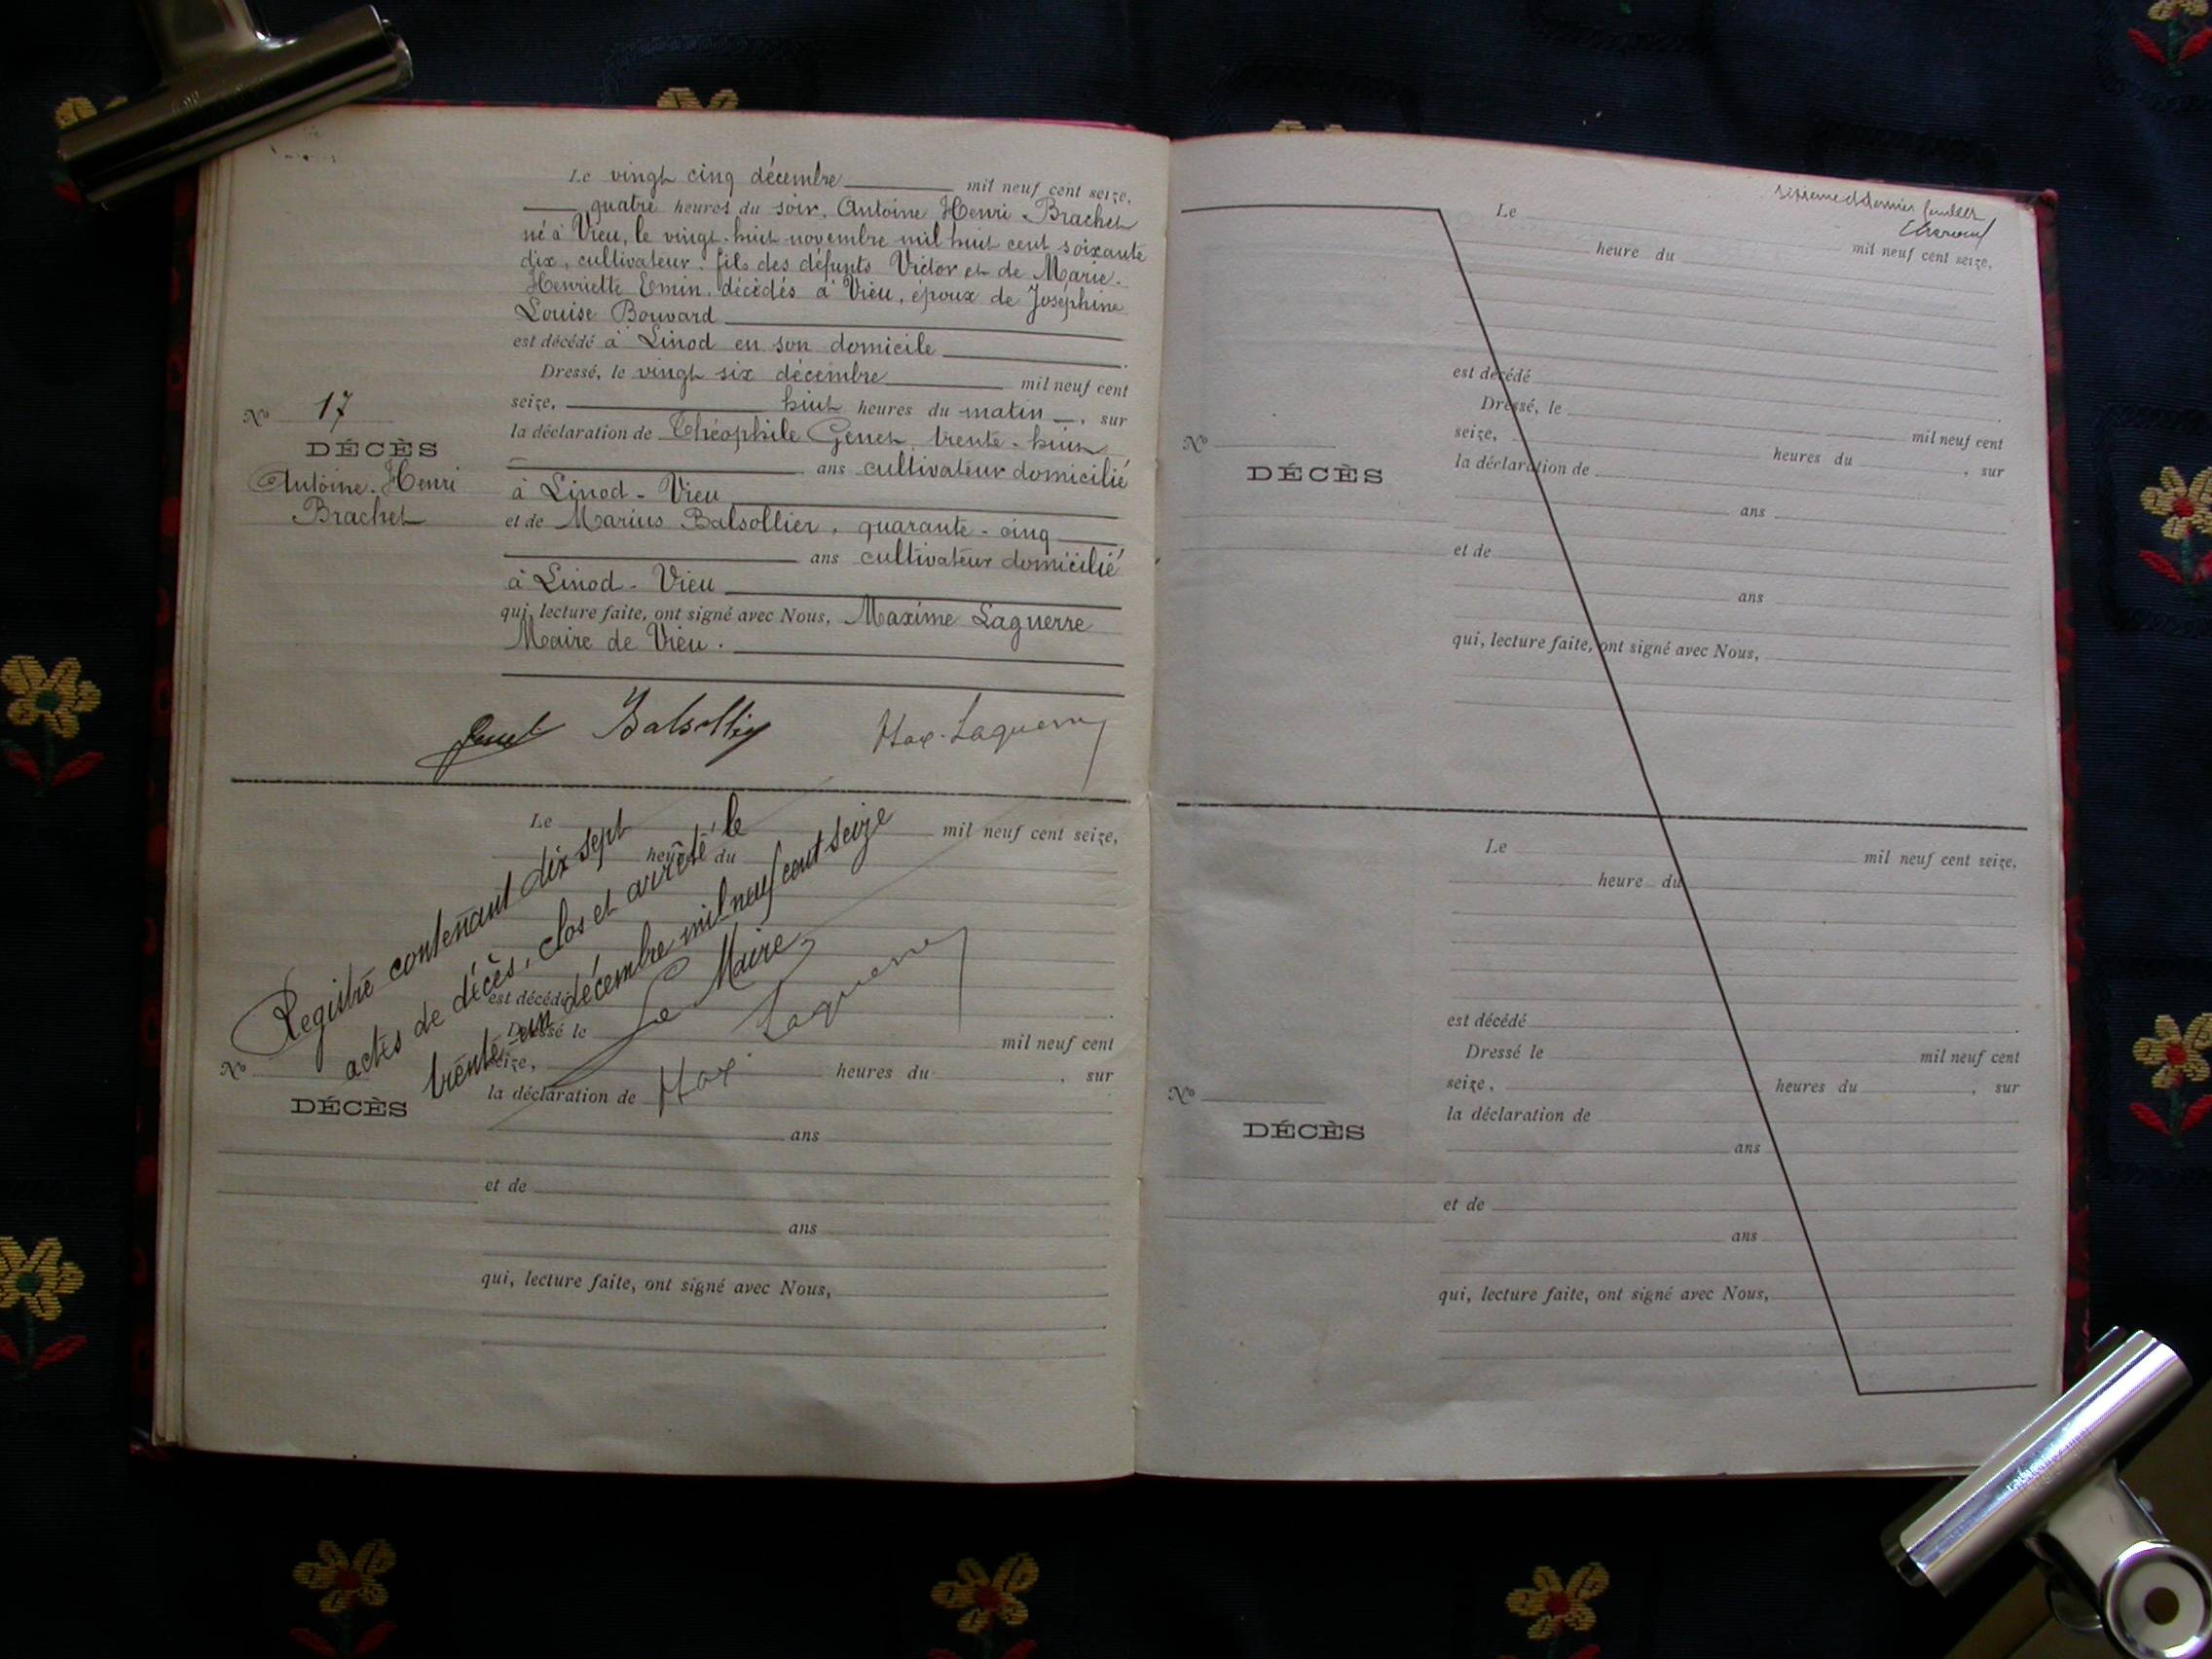 Le vingt cinq décembre mil neuf cent seize,
quatre heures du soir, Antoine Henri Brachet
né à Vieu, le vingt-huit novembre mil huit cent soixante
dix, cultivateur, fils des défunts Victor et de Marie-
Henriette Emin, décédés à Vieu, époux de Joséphine
Louise Bouvard
est décédé à Linod en son domicile
Dressé, le vingt six décembre mil neuf cent
seize, huit heures du matin, sur
la déclaration de Théophile Genet, trente-huit
ans cultivateur domicilié
à Linod-Vieu
et de Marius Balsollier, quarante-cinq
ans cultivateur domicilié
à Linod-Vieu
qui, lecture faite, ont signé avec Nous, Maxime Laguerre
Maire de Vieu.
No 17
DÉCÈS
Antoine-Henri
Brachet
Genet Balsollier Max-Laguerre
Le mil neuf cent seize,
heure du
est décédé
Dressé le mil neuf cent
seize, heures du , sur
la déclaration de
ans
et de
ans
qui, lecture faite, ont signé avec Nous,
No
DÉCÈS
Registre contenant dix sept
actes de décès, clos et arrêté le
trente-un décembre mil neuf cent seize
Le Maire
Max Laguerre
et dernier
Le
heure du mil neuf cent seize,
est décédé
Dressé, le mil neuf cent
seize, heures du , sur
la déclaration de
ans
et de
ans
qui, lecture faite, ont signé avec Nous,
No
DÉCÈS
Le mil neuf cent seize,
heure du
est décédé
Dressé le mil neuf cent
seize, heures du , sur
la déclaration de
ans
et de
ans
qui, lecture faite, ont signé avec Nous,
No
DÉCÈS